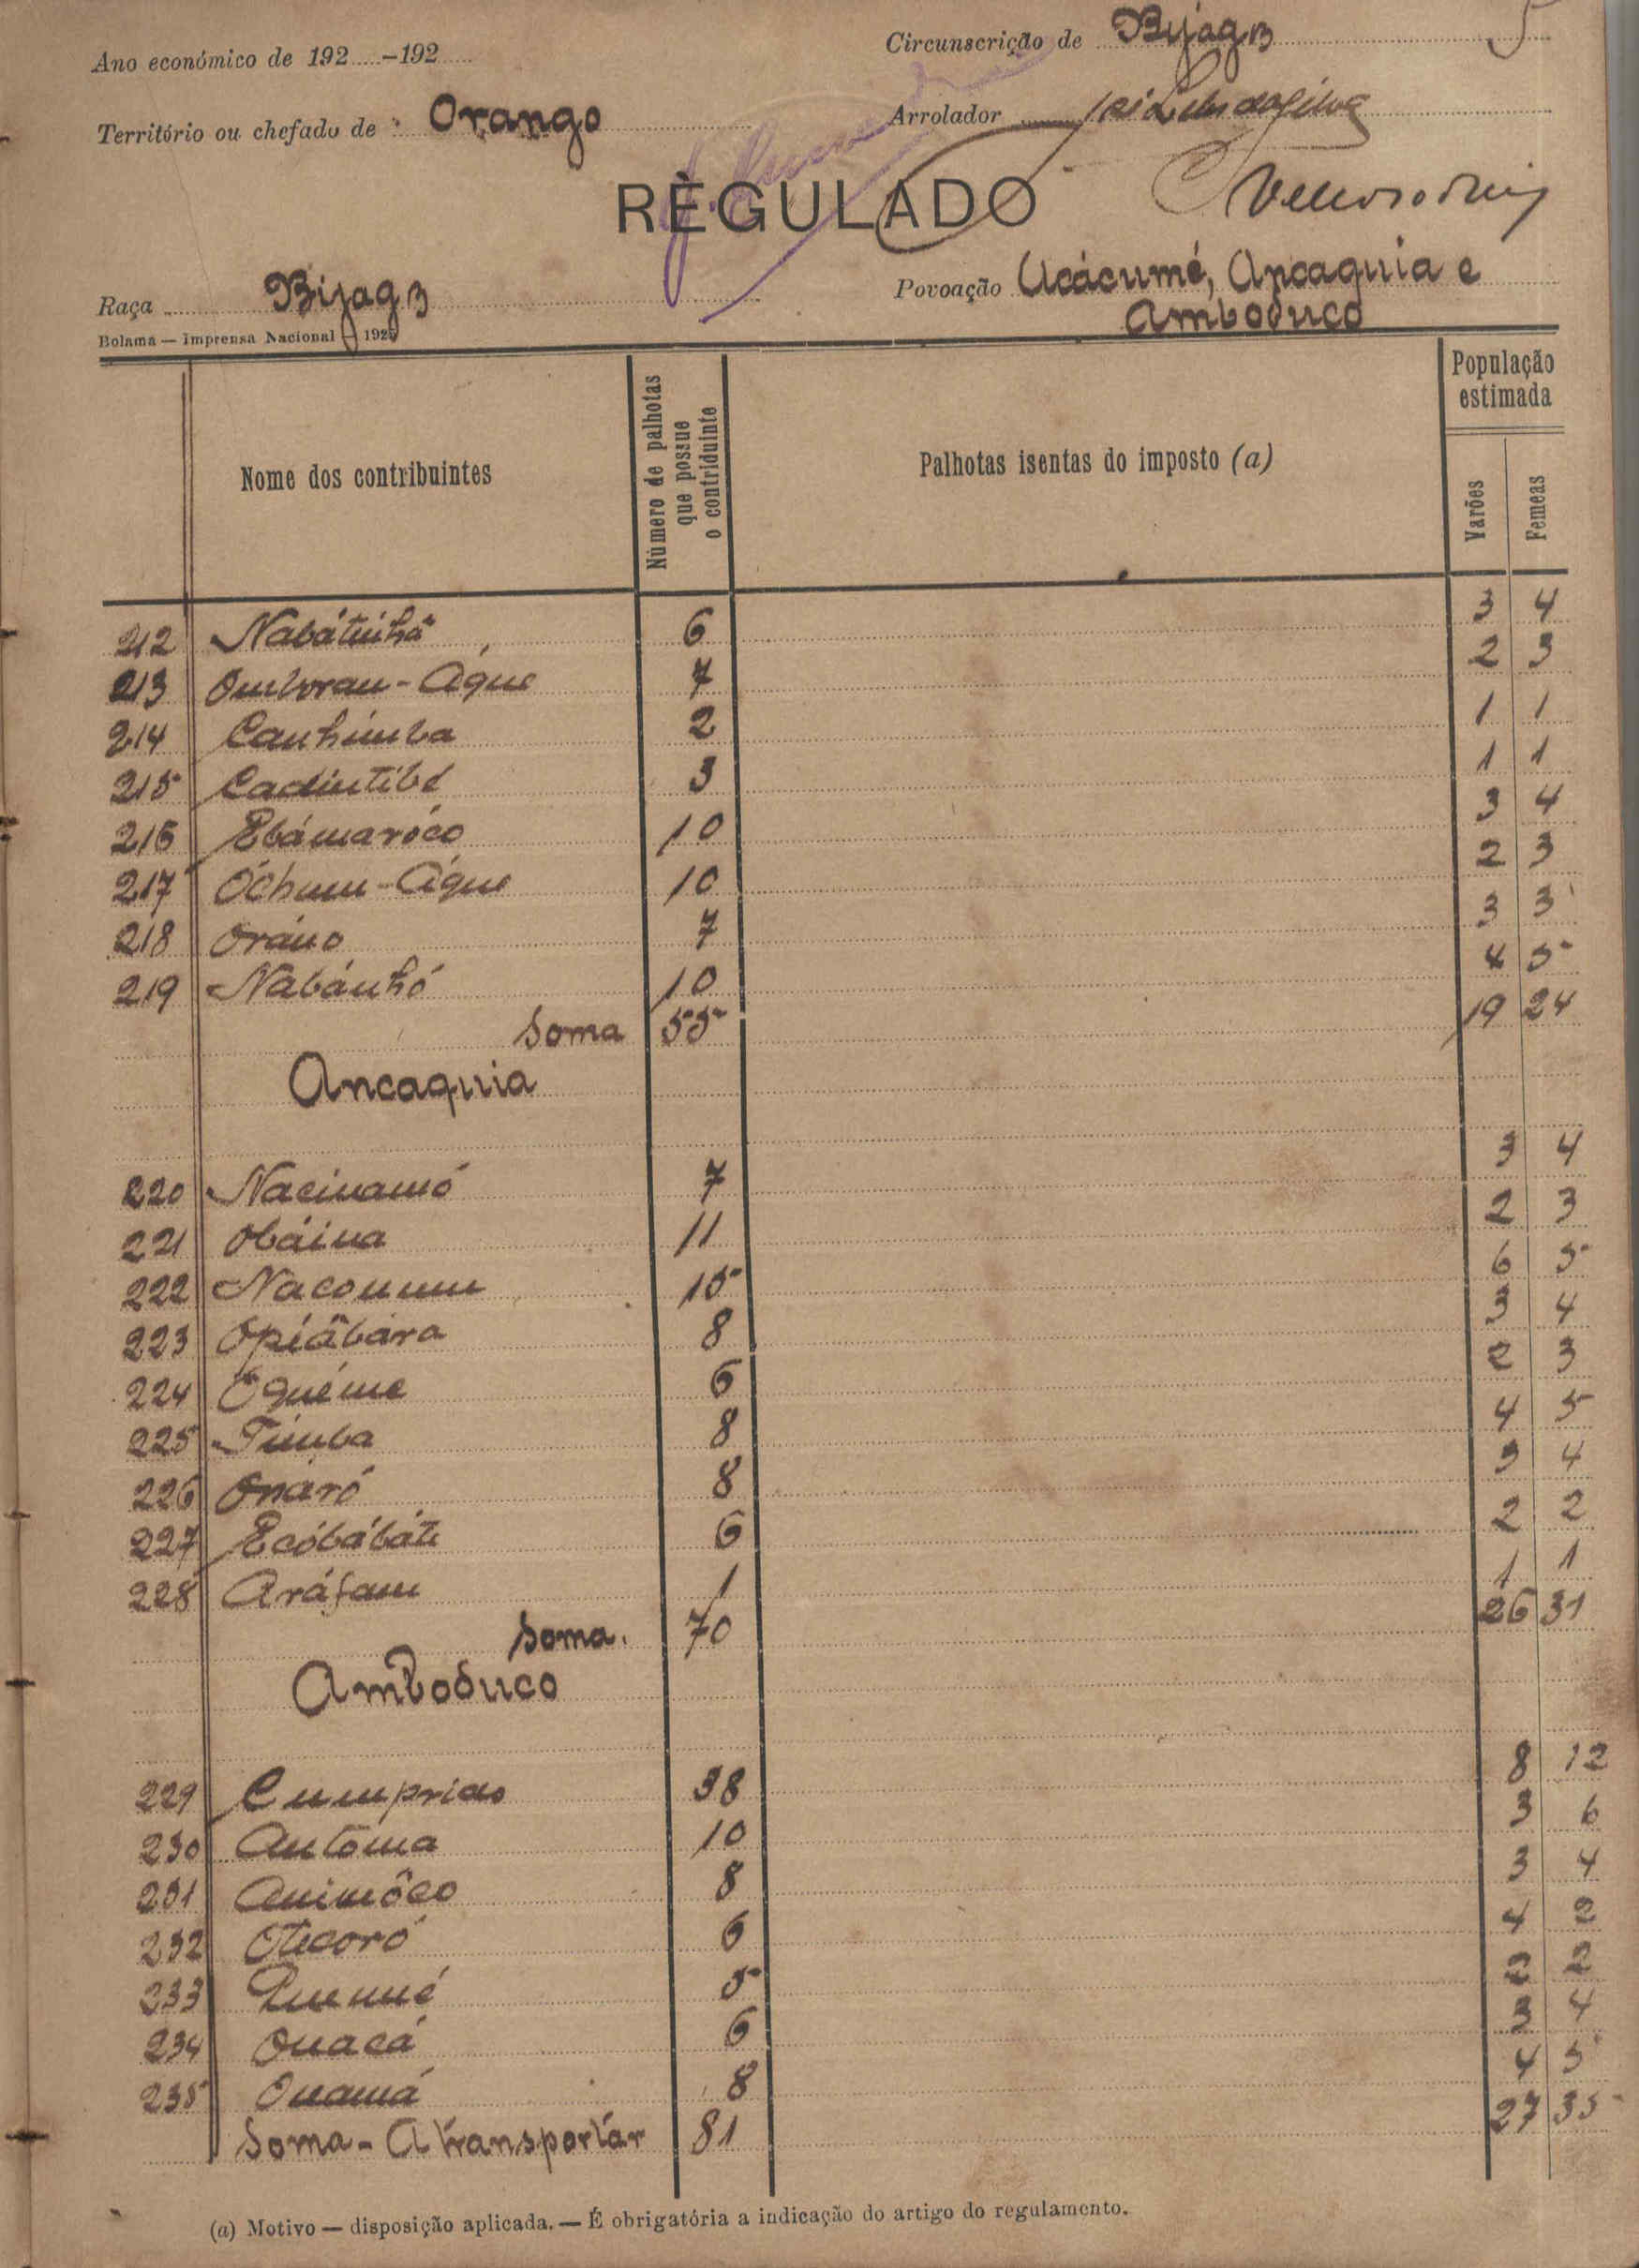 Ano económico de 192.....-192.....
Circunscrição de Bijagoz 5
Território ou chefado de Orango
Arrolador
RÈGULADO
Raça Bijagoz
Povoação Acácumé, Ancaquia e
Amboduco
Bolama — Imprensa Nacional — 1925
Nome dos contribuintes
Número de palhotas que possue o contriduinte
Palhotas isentas do imposto (a)
População estimada
Varões
Femeas
212 Nabátinhá 6 3 4
213 Omboran-Aque 7 2 3
214 Canhimba 2 1 1
215 Cadintibé 3 1 1
216 Ebámaróco 10 3 4
217 Óchum-Aque 10 2 3
218 Oráno 7 3 3
219 Nabánhó 10 4 5
Soma 55 19 24
Ancaquia
220 Nacinamó 7 3 4
221 Obáina 11 2 3
222 Naconum 15 6 5
223 Opiâbára 8 3 4
224 Oquéme 6 2 3
225 Timba 8 4 5
226 Onáró 8 3 4
227 Ecóbábáti 6 2 2
228 Aráfam 1 1 1
Soma. 70 26 31
Amboduco
229 Cumprido 38 8 12
230 Antóma 10 3 6
231 Animôco 8 3 4
232 Otecoró 6 4 2
233 5 2 2
234 Ouacá 6 3 4
235 Ouamá 8 4 5
Soma - A transportár 81 27 35
(a) Motivo — disposição aplicada. — É obrigatória a indicação do artigo do regulamento.